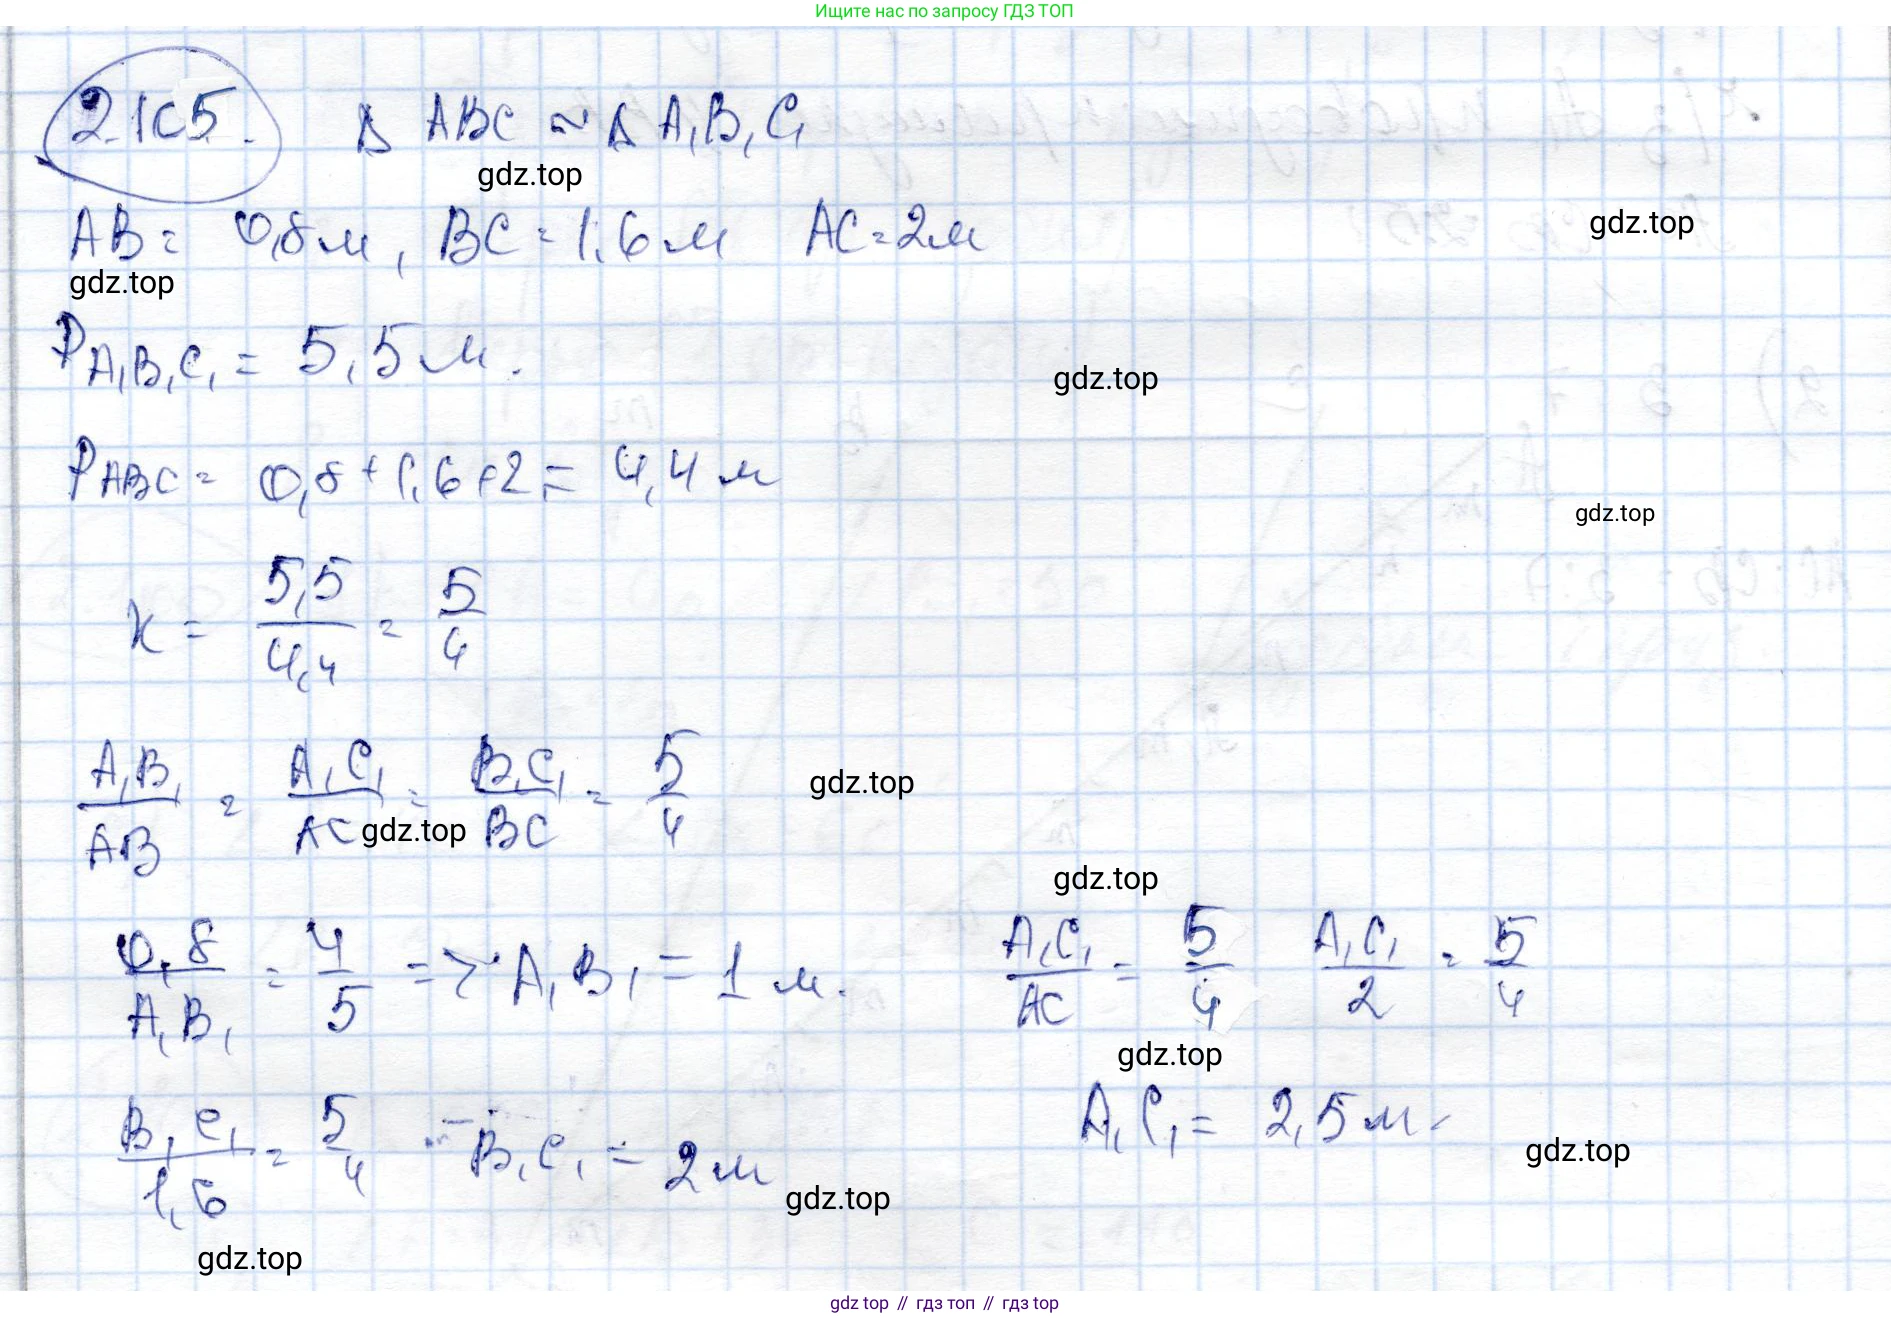 Ищите нас по запросу ГДЗ ТОП
2.105. Δ ABC ~ Δ A₁B₁C₁
gdz.top
AB = 0,8 м, BC = 1,6 м AC = 2 м
gdz.top
gdz.top
P A₁B₁C₁ = 5,5 м.
gdz.top
P ABC = 0,8 + 1,6 + 2 = 4,4 м
gdz.top
k = 5,5/4,4 = 5/4
A₁B₁/AB = A₁C₁/AC = B₁C₁/BC = 5/4
gdz.top
gdz.top
gdz.top
0,8/A₁B₁ = 4/5 => A₁B₁ = 1 м. A₁C₁/AC = 5/4 A₁C₁/2 = 5/4
gdz.top
B₁C₁/1,6 = 5/4 B₁C₁ = 2 м A₁C₁ = 2,5 м.
gdz.top
gdz.top
gdz.top
gdz top // гдз топ // гдз top